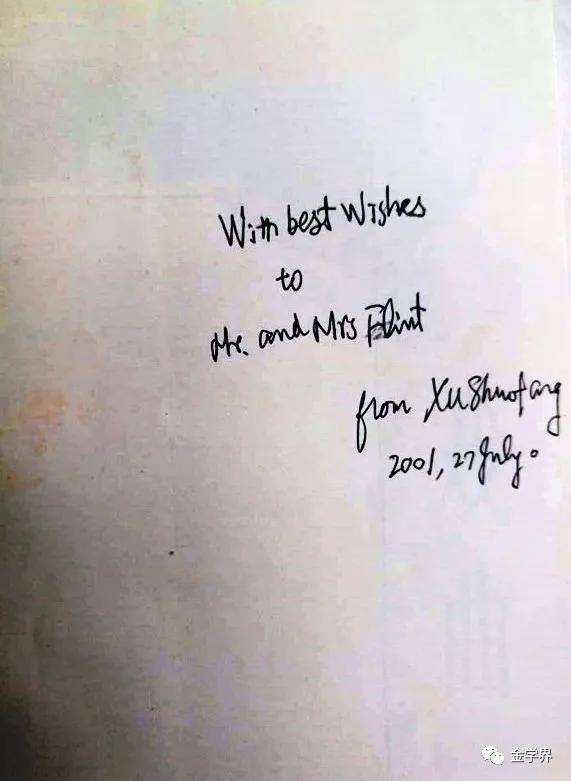 With best Wishes
to
Mr. and Mrs Flint
from Xu Shuofang
2001, 27 July。
金学界